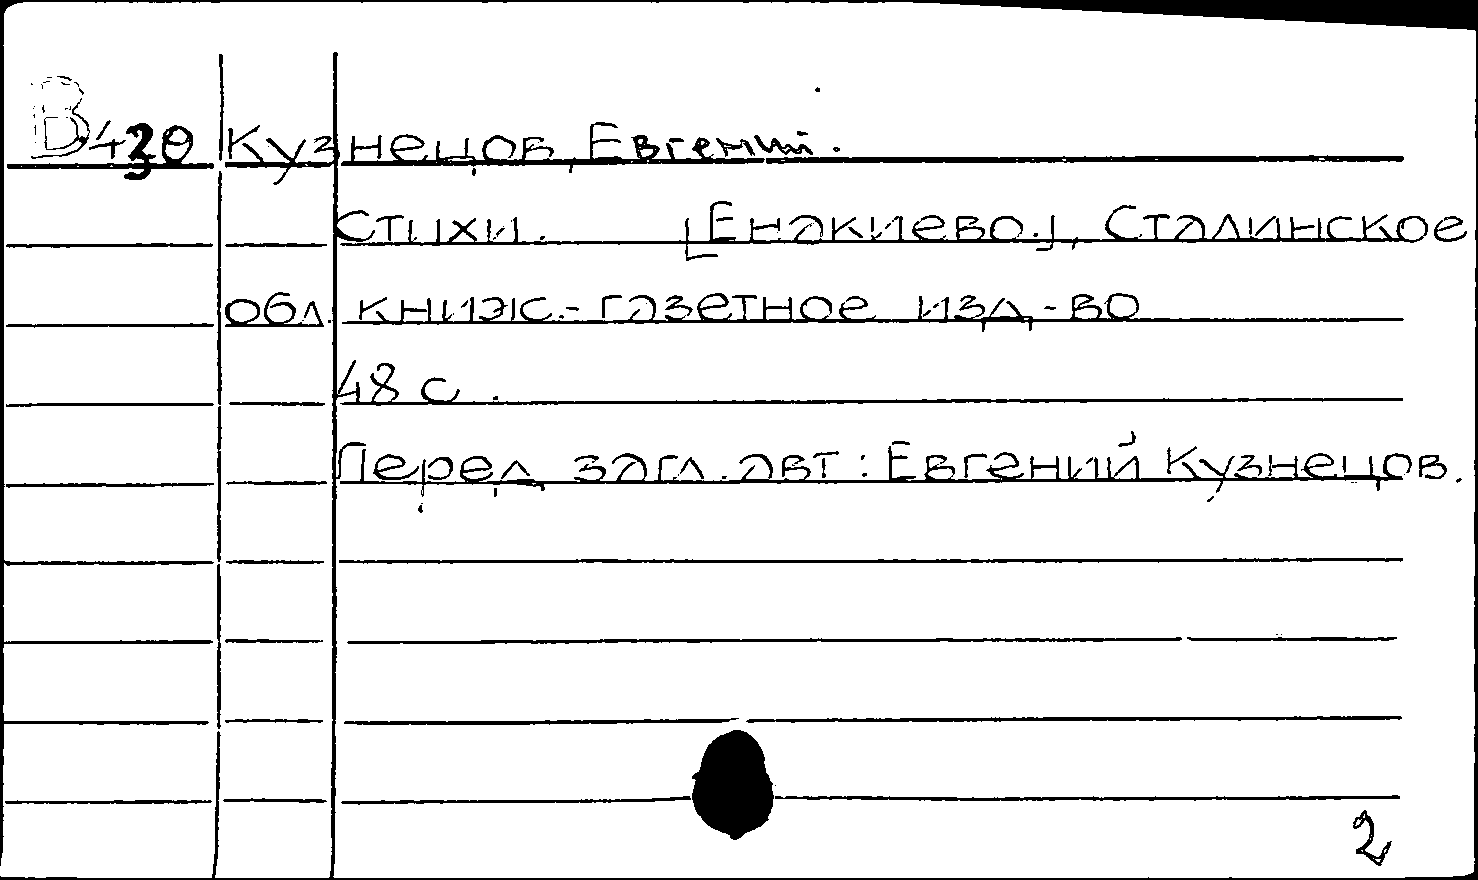 Кузнецов, Евгений.
Стихи. [Енакиево.], Сталинское
обл. книж.-газетное изд-во
48 с.
Перед загл. авт: Евгений Кузнецов.
2